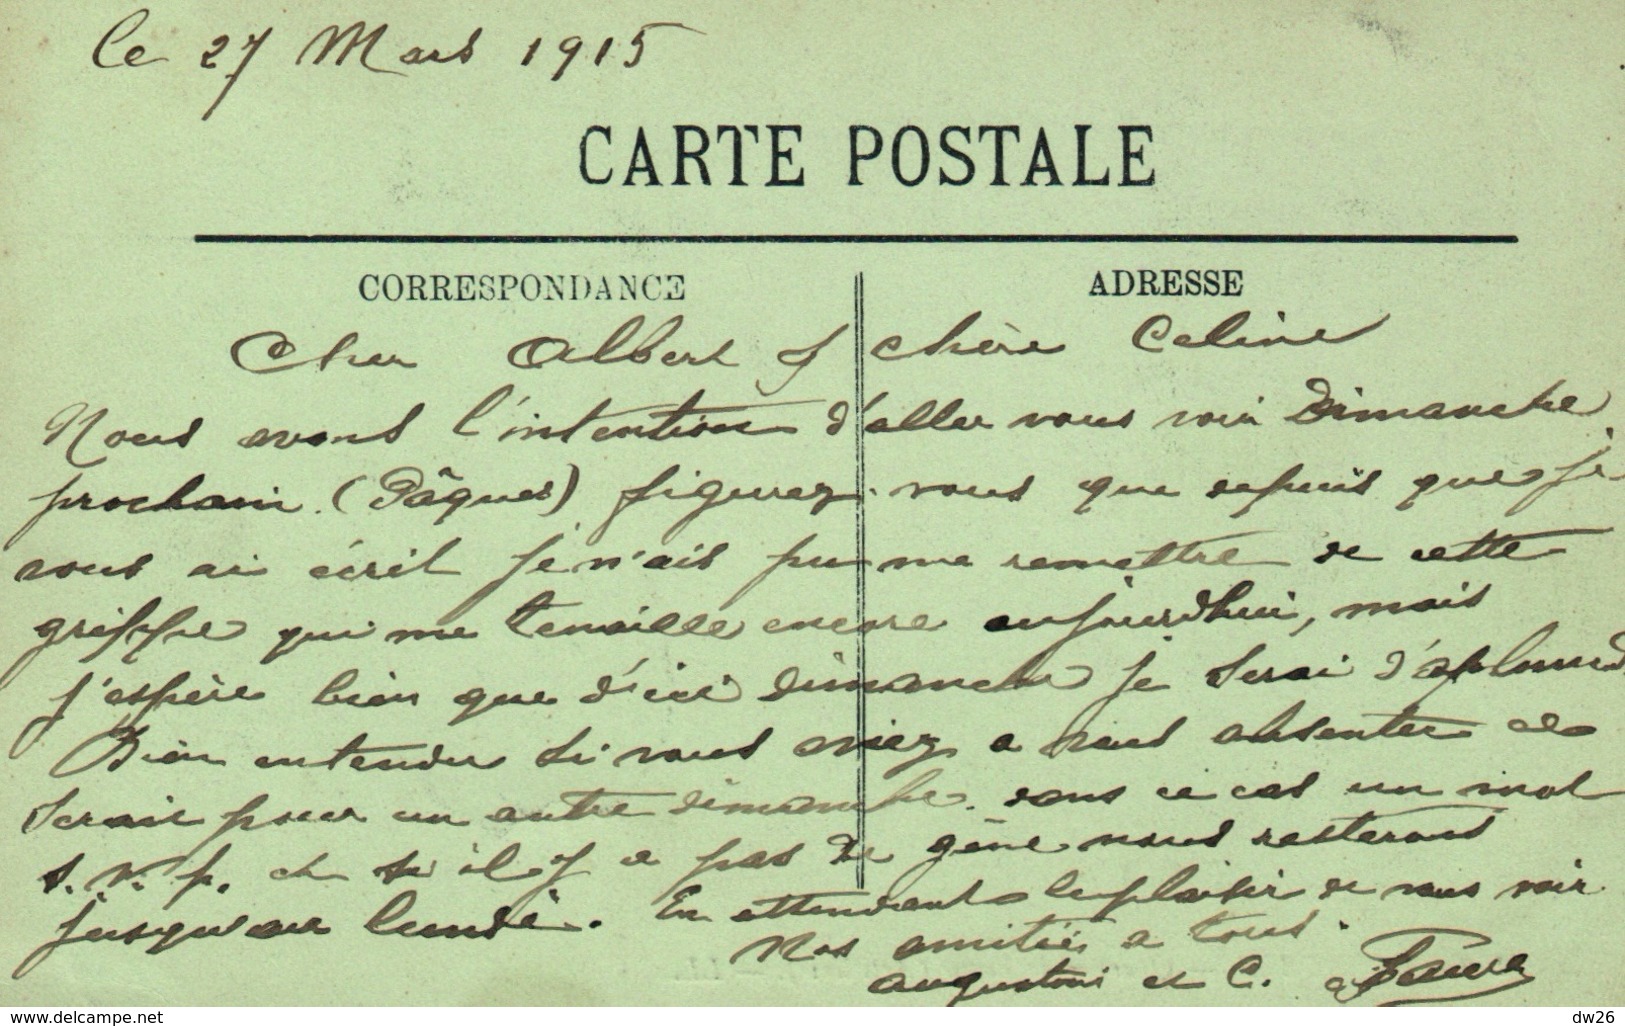 le 27 Mars 1915
CARTE POSTALE
CORRESPONDANCE
ADRESSE
Cher Albert & chère Celine
Nous avons l'intention d'aller vous voir Dimanche
prochain (Pâques) figurez-vous que depuis que je
vous ai écrit je n'ais pu me remettre de cette
grippe qui me tenaille encore aujourd'hui, mais
j'espère bien que d'ici dimanche je serai d'aplomb
Bien entendu si vous aviez a vous absenter ce
serait pour un autre dimanche. dans ce cas un mot
s. v. p. et s'il y a pas de gène nous resterons
jusqu'au lundi. En attendant le plaisir de vous voir
Nos amitiés a tous.
Augustine et C. Faure
www.delcampe.net
dw26